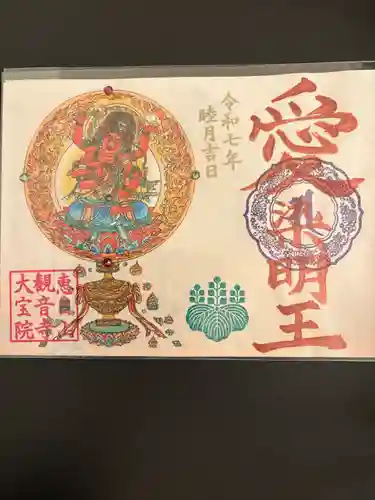 愛染明王
令和七年
睦月吉日
恵日山
観音寺
大宝院